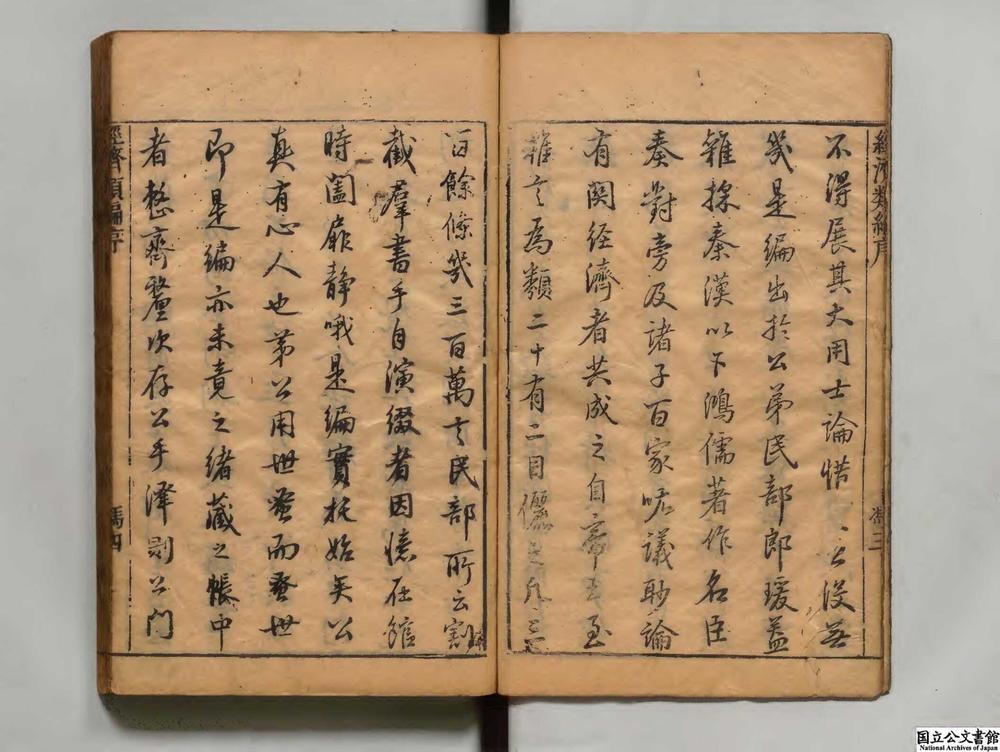 經濟類編序
馮三
不得展其大用士論惜〻公沒無
幾是編出於公弟民部郎瑗蓋
雜採秦漢以下鴻儒著作名臣
奏對旁及諸子百家呫議眇論
有関経濟者共成之自帝王至
雜言為類二十有二目儷之凡三
百餘條幾三百萬言民部所云割
截羣書手自演綴者因憶在館
時闔扉静哦是編實托始矣公
真有心人也第公用世蚤而蚤世
即是編亦未竟之緒蔵之帳中
者整齊釐次存公手澤則公門
經濟類編序
馮四
国立公文書館
National Archives of Japan